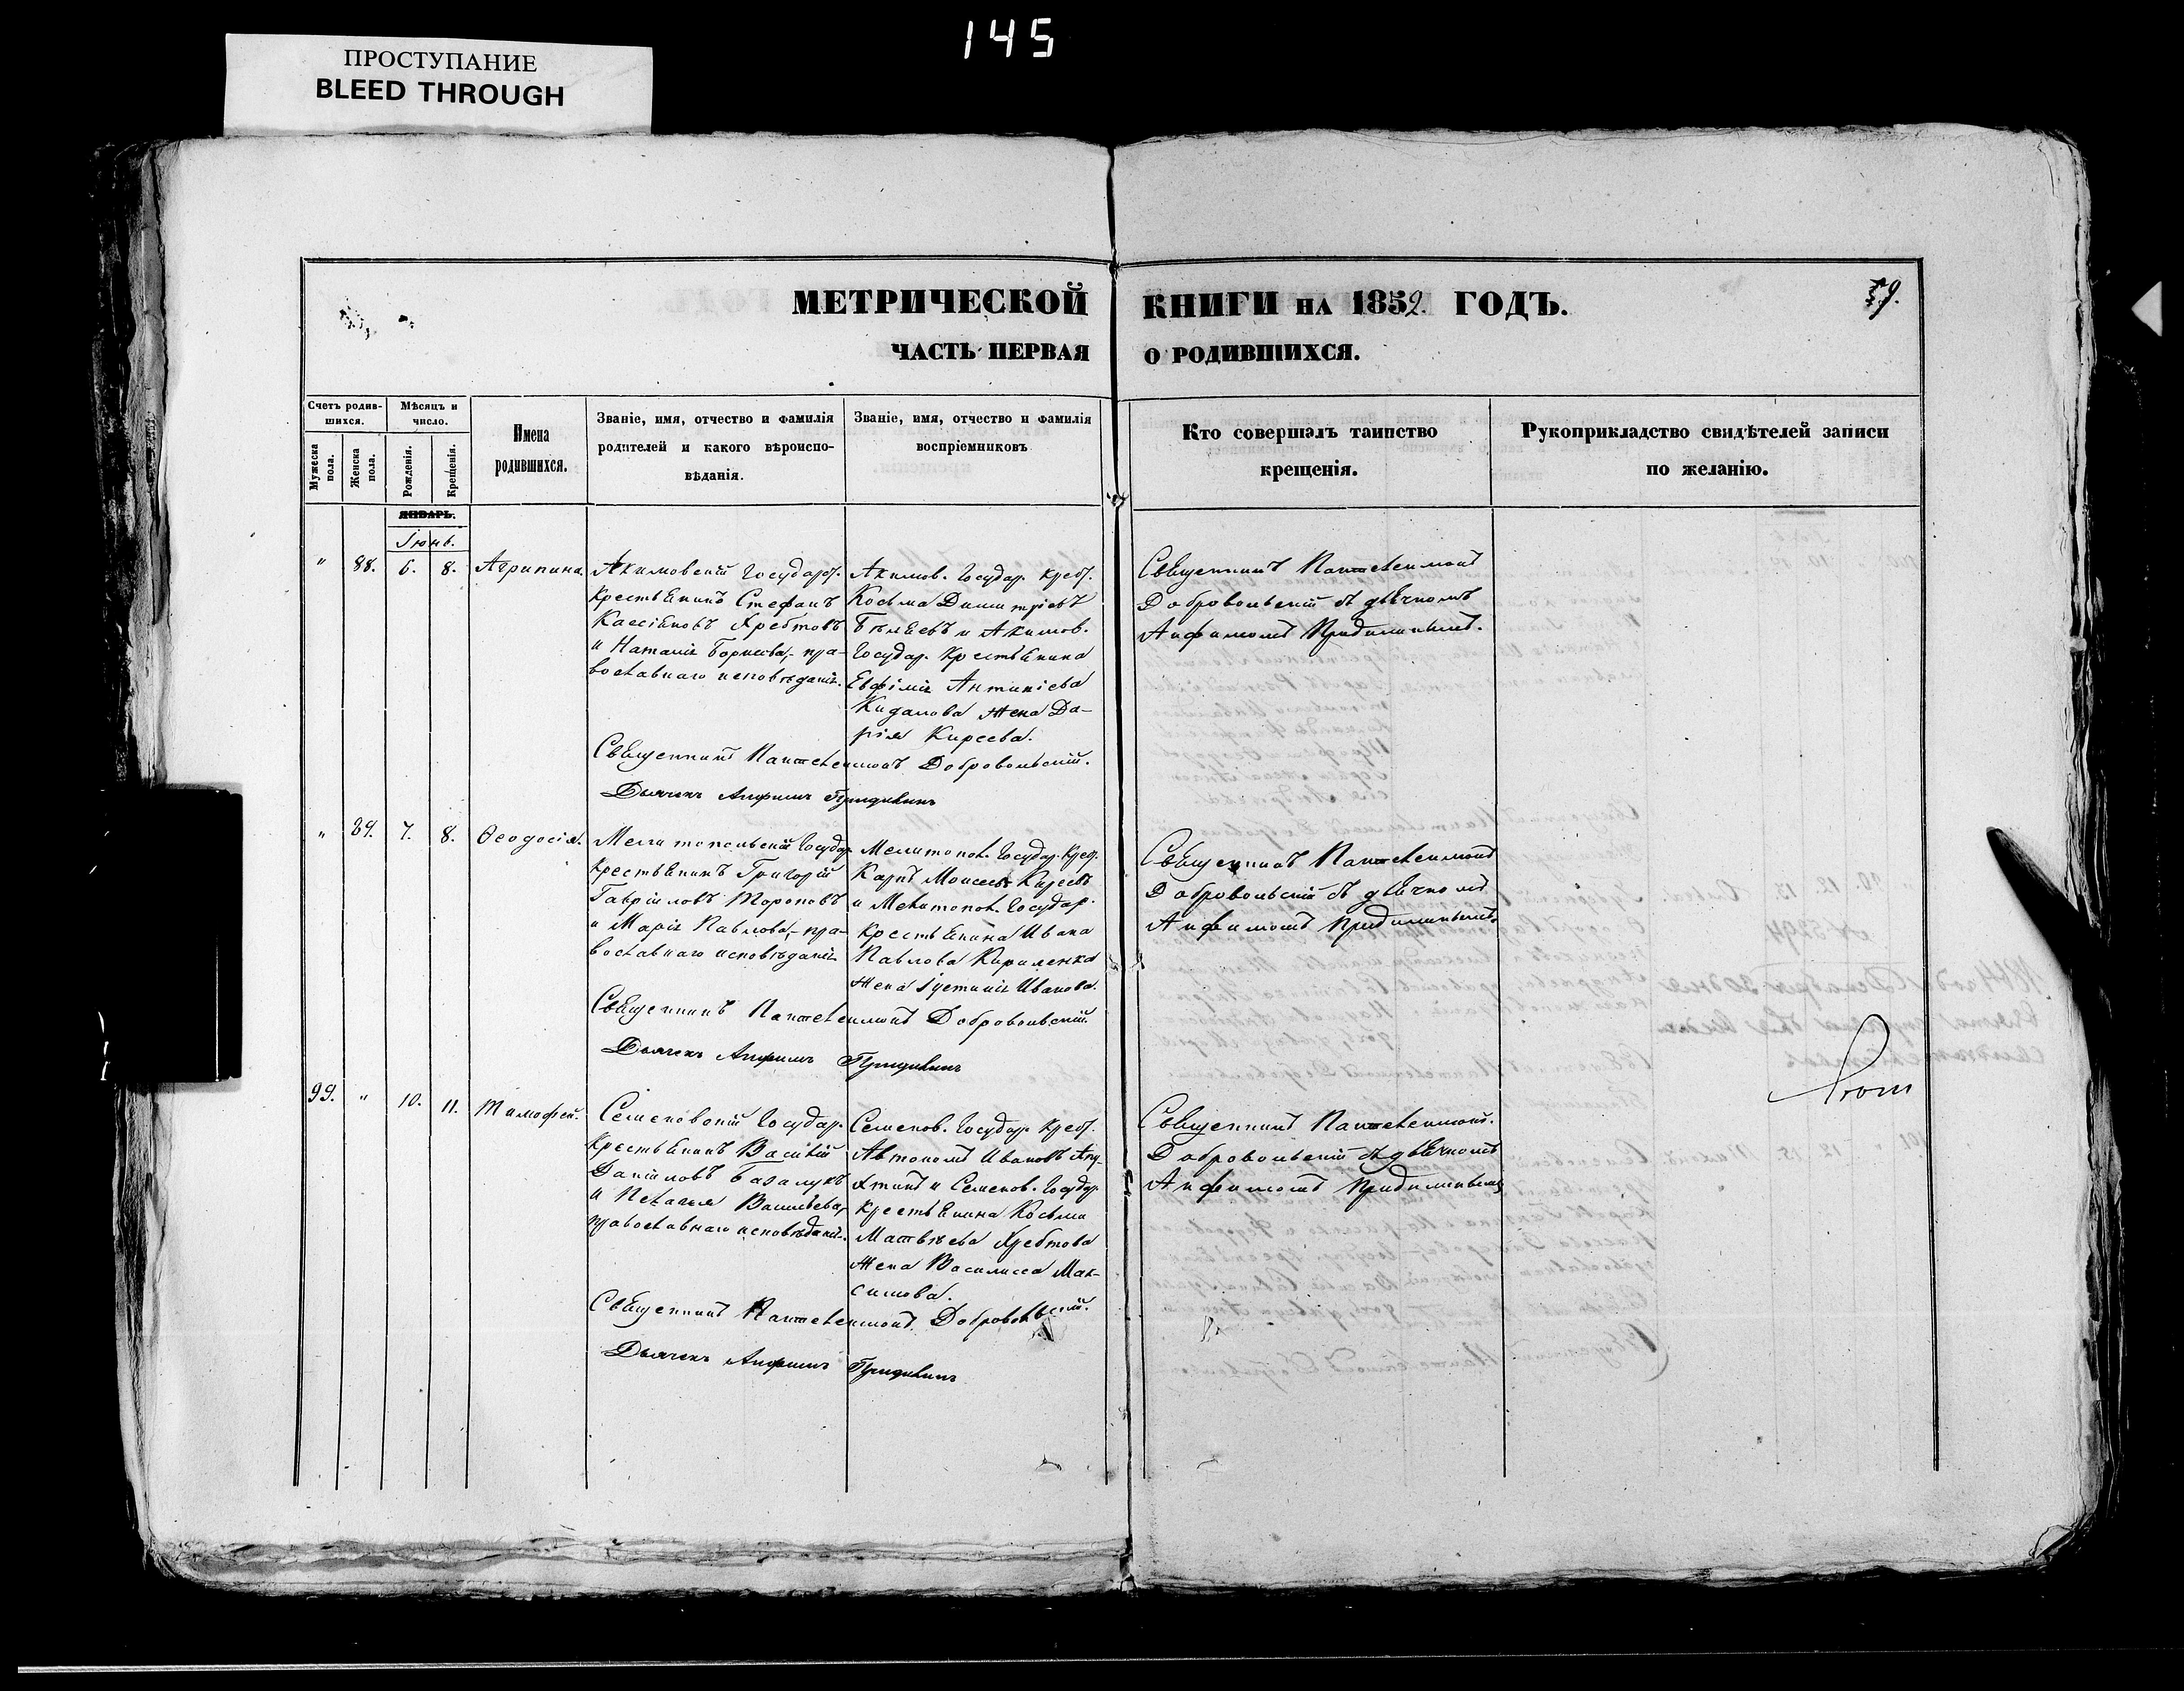 145
ПРОСТУПАНИЕ
BLEED THROUGH
МЕТРИЧЕСКОЙ КНИГИ НА 1852. ГОДЪ.
59.
ЧАСТЬ ПЕРВАЯ О РОДИВШИХСЯ.
Счетъ родив-
шихся.
Мужеска
пола.
Женска
пола.
Мѣсяцъ и
число.
Рожденія.
Крещенія.
Имена
родившихся.
Званіе, имя, отчество и фамилія
родителей и какого вѣроиспо-
вѣданія.
Званіе, имя, отчество и фамилія
воспріемниковъ
Кто совершалъ таинство
крещенія.
Рукоприкладство свидѣтелей записи
по желанію.
ЯНВАРЬ.
Іюнь.
" 88. 6. 8. Агрипина.
Акимовскій Государ.
крестьянинъ Стефанъ
Кассіяновъ Хребтовъ
и Наталія Борисова,- пра-
вославнаго исповѣданія.
Акимов. Государ. крест.
Косьма Димитріевъ
Бѣляевъ и Акимов.
Государ. крестьянина
Евфимія Антипіева
Кидалова жена Да-
рія Киреева.
Священникъ Пантелеимонъ
Добровольскій съ дьячкомъ
Анфимомъ
Священникъ Пантелеимонъ Добровольскій.
Дьячекъ Анфимъ
" 89. 7. 8. Ѳеодосія.
Мелитопольскій Государ.
крестьянинъ Григорій
Гавріиловъ Тороповъ
и Марія Павлова,- пра-
вославнаго исповѣданія
Мелитопол. Государ. крес.
Карпъ Моисеевъ Киреевъ
и Мелитопол. Государ.
крестьянина Ивана
Павлова Кириленка
жена Іустинія Иванова.
Священникъ Пантелеимонъ
Добровольскій съ дьячкомъ
Анфимомъ
Священникъ Пантелеимонъ Добровольскій.
Дьячекъ Анфимъ
99. " 10. 11. Тимофей.
Семеновскій Государ.
крестьянинъ Василій
Даніиловъ Базалукъ
и Пелагія Васильева,
православнаго исповѣданія.
Семенов. Государ. крест.
Автономъ Ивановъ
и Семенов. Государ.
крестьянина Косьмы
Матвѣева Хребтова
жена Василисса Мак-
симова.
Священникъ Пантелеимонъ.
Добровольскій съ дьячкомъ
Анфимомъ
Священникъ Пантелеимонъ Добровольскій.
Дьячекъ Анфимъ